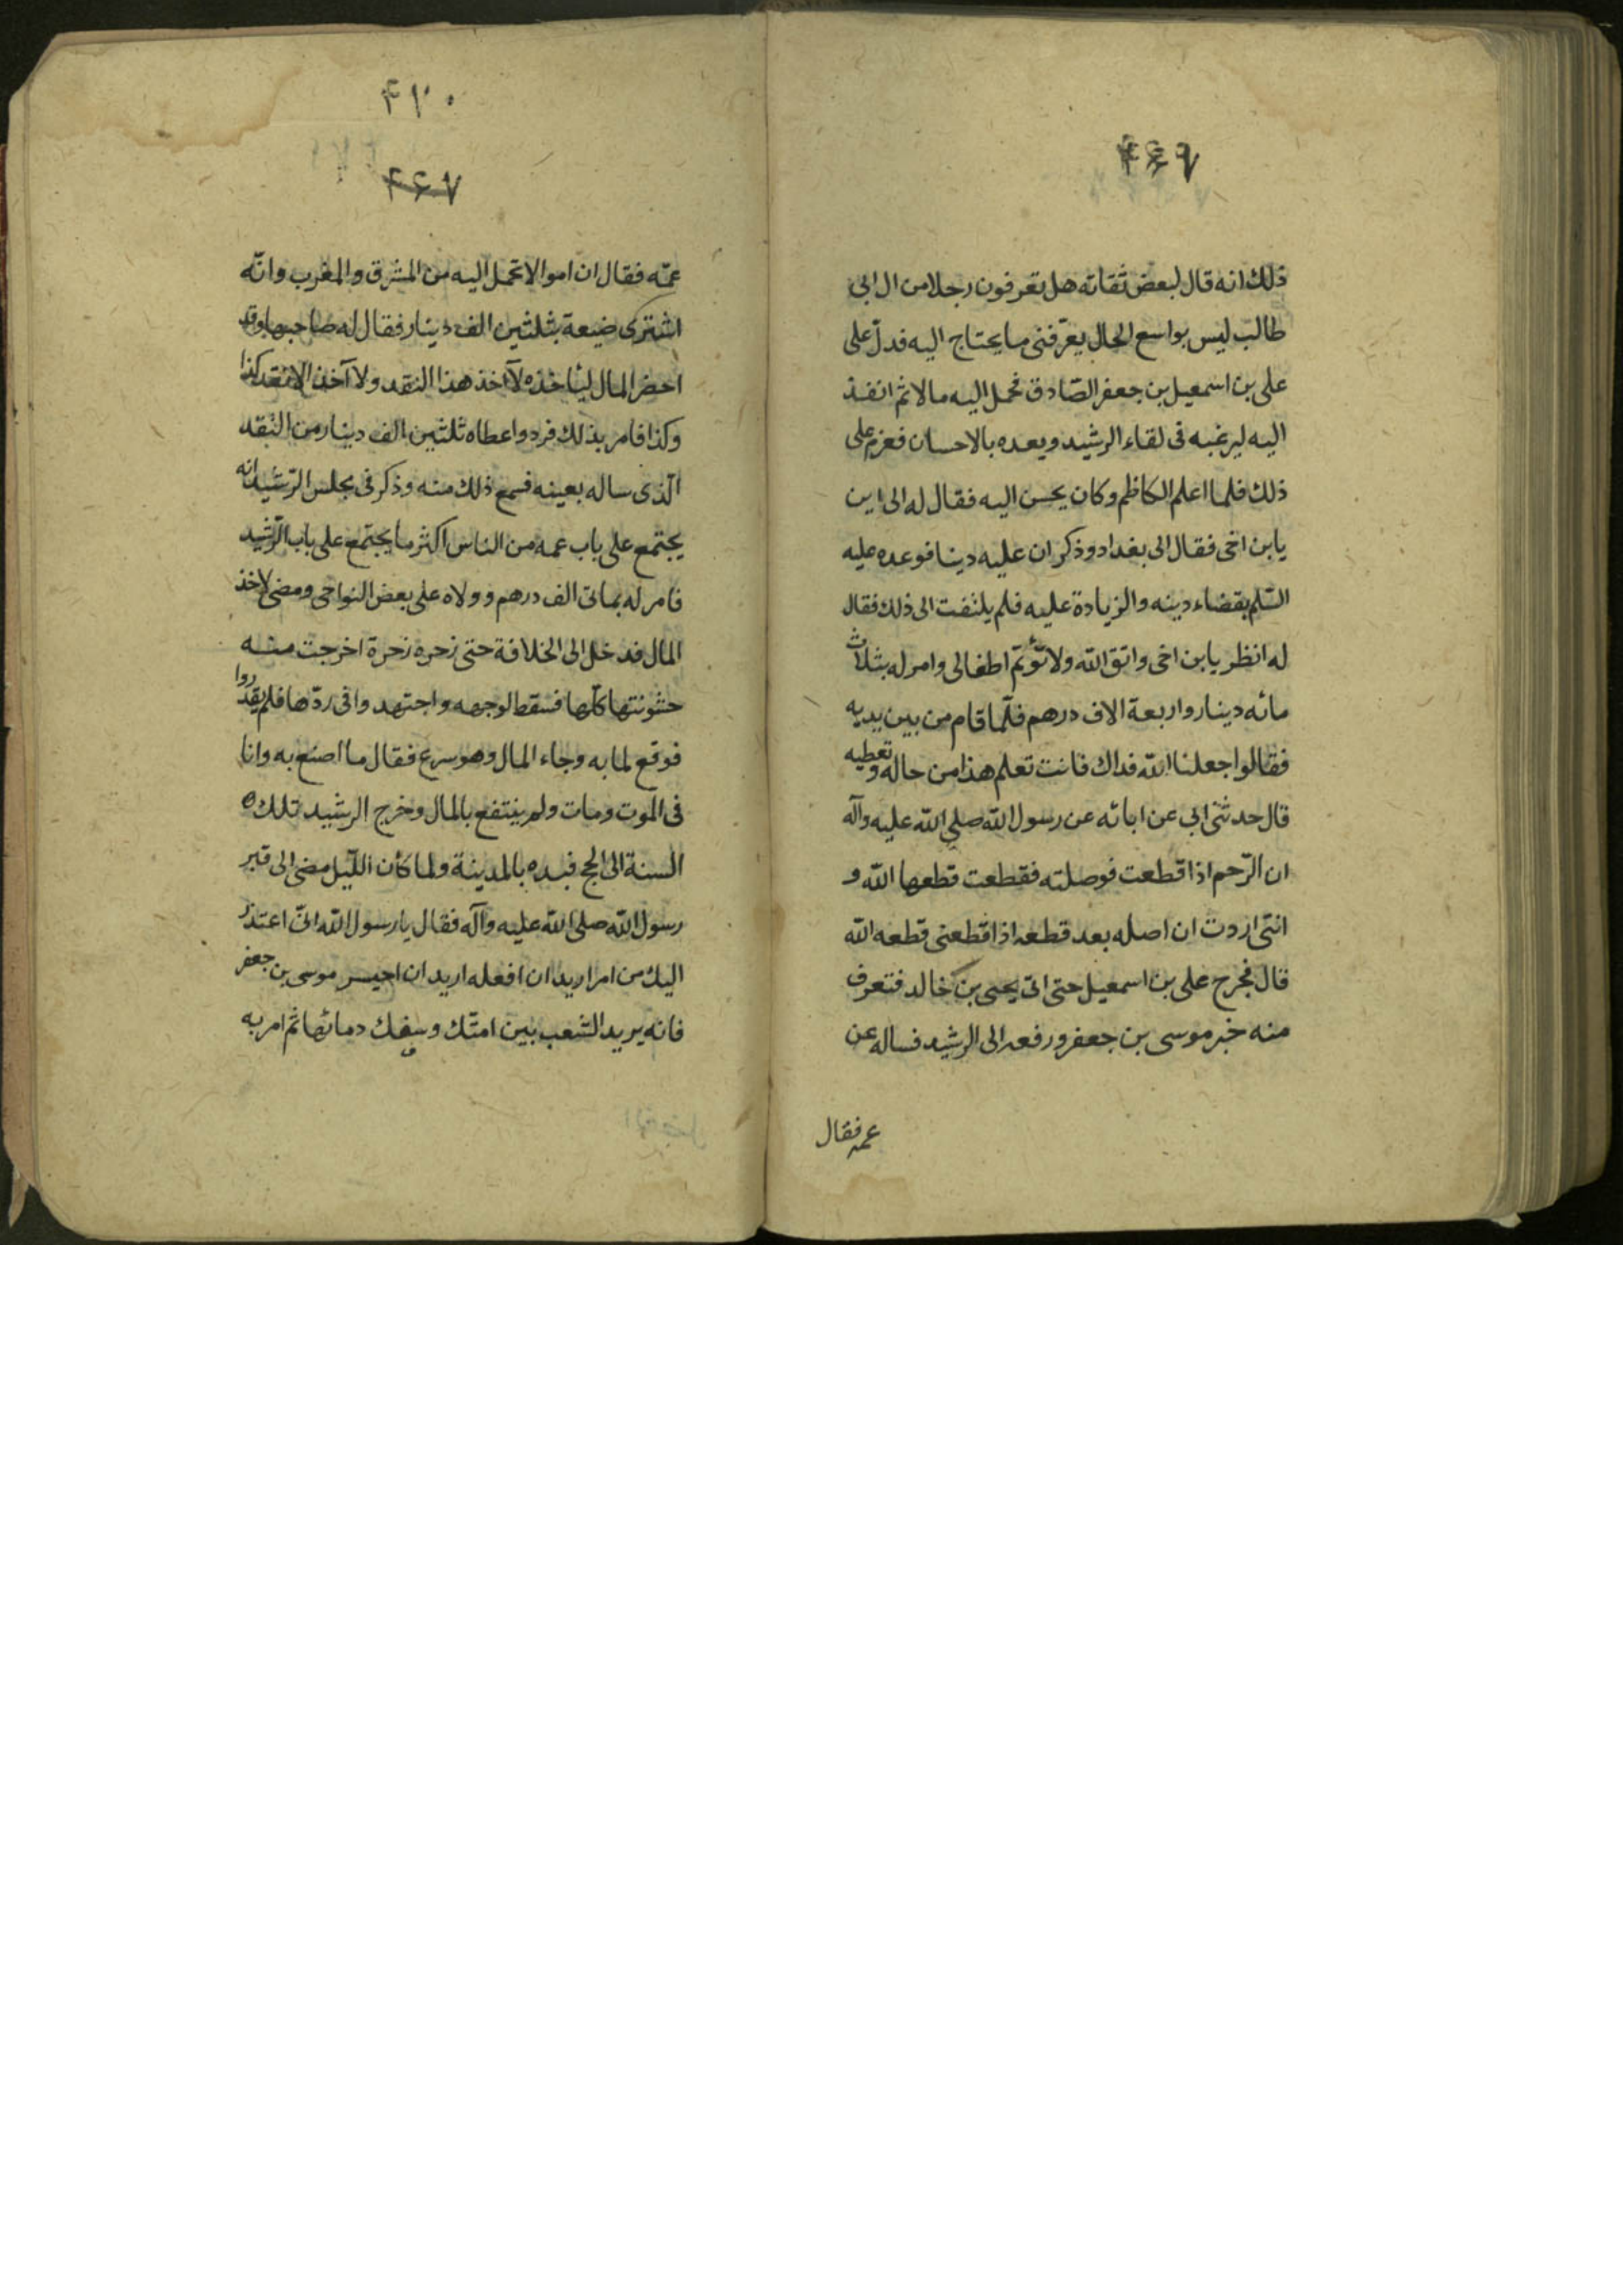 ۴۶۹
ذلك انه قال لبعض ثقاته هل تعرفون رجلا من ال ابى
طالب ليس بواسع الحال يعرّفنى ما يحتاج اليه فدلّ على
على بن اسمعيل بن جعفر الصّادق فحمل اليه مالا ثم انفذ
اليه ليرغبه فى لقاء الرشيد ويعده بالاحسان فعزم على
ذلك فلما اعلم الكاظم وكان يحسن اليه فقال له الى اين
يابن اخى فقال الى بغداد وذكر ان عليه دينا فوعده عليه
السّلم بقضاء دينه والزيادة عليه فلم يلتفت الى ذلك فقال
له انظر يابن اخى واتق الله ولا تؤتم اطفالى وامر له بثلاث
مائه دينار واربعة الاف درهم فلّما قام من بين يديه
فقالوا جعلنا الله فداك فانت تعلم هذا من حاله وتعطيه
قال حدثنى ابى عن ابائه عن رسول الله صلى الله عليه وآله
ان الرّحم اذا قطعت فوصلته فقطعت قطعها الله و
انّنى اردت ان اصله بعد قطعه اذا قطعنى قطعه الله
قال فخرج على بن اسمعيل حتى اتى يحيى بن خالد فتعرف
منه خبر موسى بن جعفر ورفعه الى الرشيد فساله عن
عمه فقال
۴۱۰
۴۶۷
عمّه فقال ان اموالا تحمل اليه من المشرق والمغرب وانّه
اشترى ضيعة بثلثين الف دينار فقال له صاحبها وقد
احضر المال ليأخذه لآ اخذ هذا النقد ولا آخذ الا نقد كذا
وكذا فامر بذلك فرد واعطاه ثلثين الف دينار من النّقد
الّذى ساله بعينه فسمع ذلك منه وذكر فى مجلس الرّشيد انه
يجتمع على باب عمه من الناس اكثر ما يجتمع على باب الرّشيد
فامر له بماتى الف درهم وولاه على بعض النواحى ومضى لاخذ
المال فدخل الى الخلافة حتى زحره زحرة اخرجت منه
حشونتها كلّها فسقط لوجهه واجتهد وافى ردّها فلم يقدروا
فوقع لما به وجاء المال وهو سرع فقال ما اصنع به وانا
فى الموت ومات ولم ينتفع بالمال وخرج الرشيد تلك
السنة الى الحج فبده بالمدينة ولما كأن اللّيل مضى الى قبر
رسول الله صلى الله عليه وآله فقال يا رسول الله انى اعتذر
اليك من امر اريد ان افعله اريد ان احبس موسى بن جعفر
فانه يريد الشعب بين امتّك وسفك دمائها ثم امر به